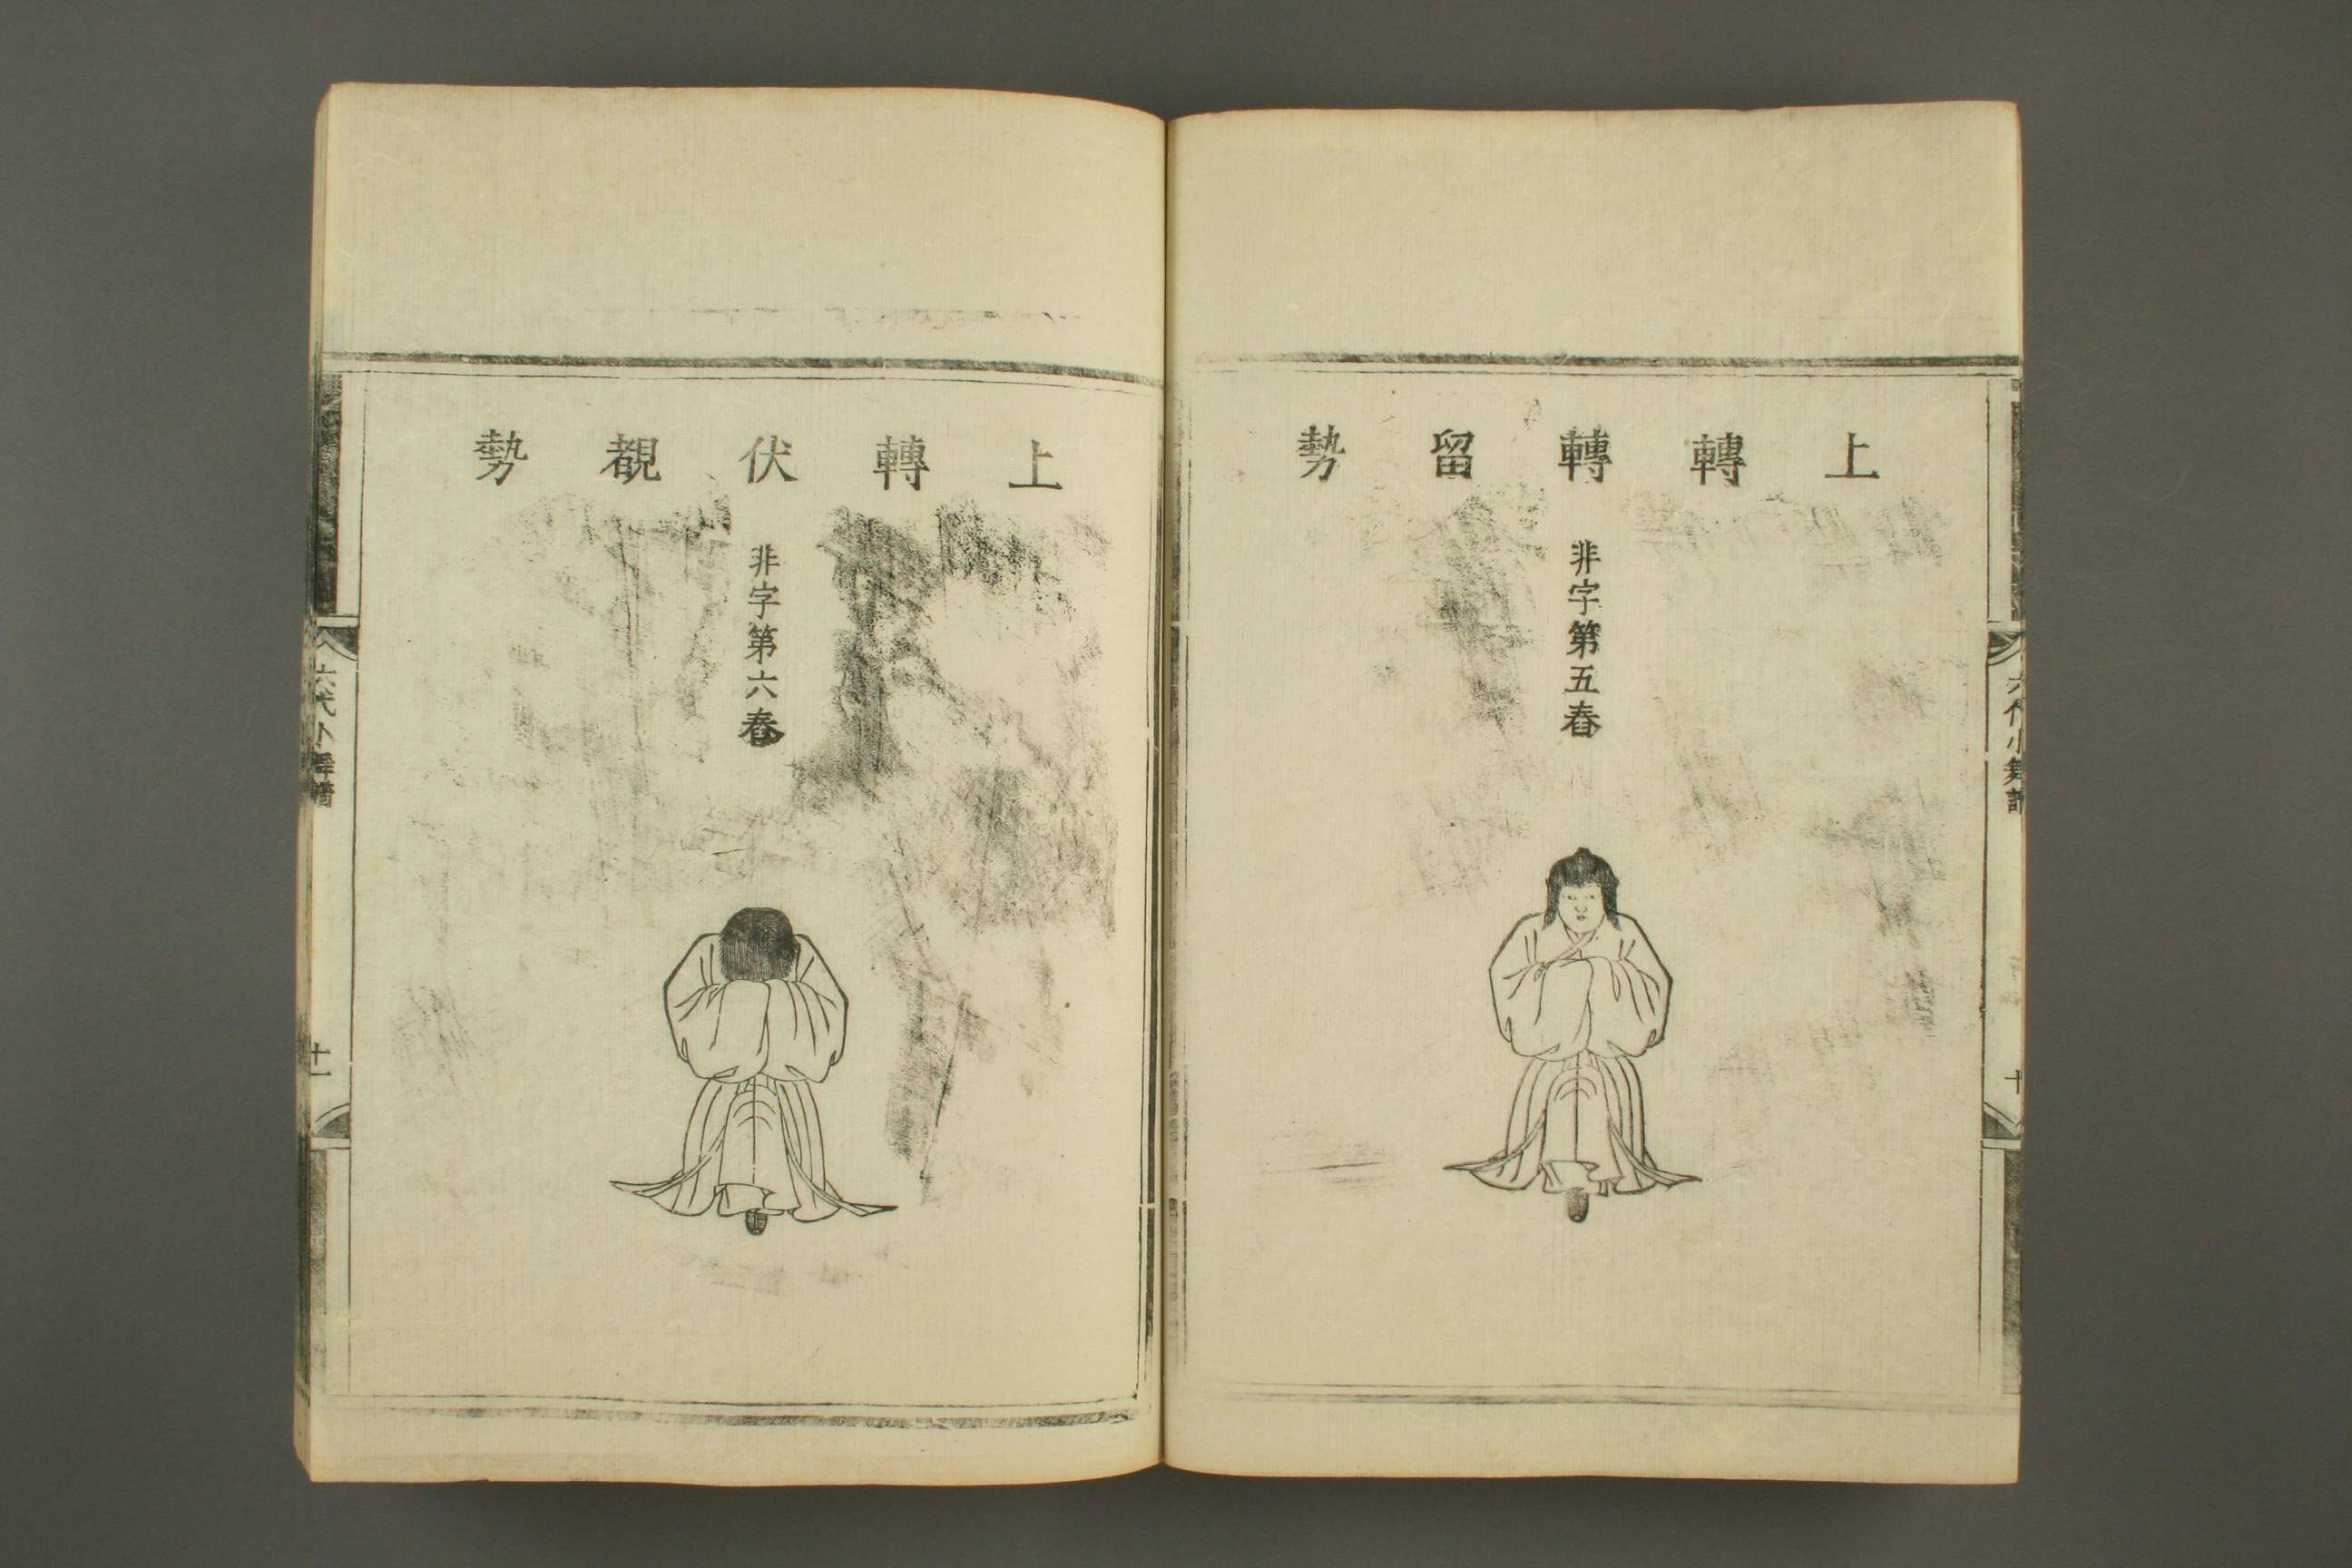 上轉轉留勢
非字第五舂
六代小舞譜
十
上轉伏覩勢
非字第六舂
六代小舞譜
十一